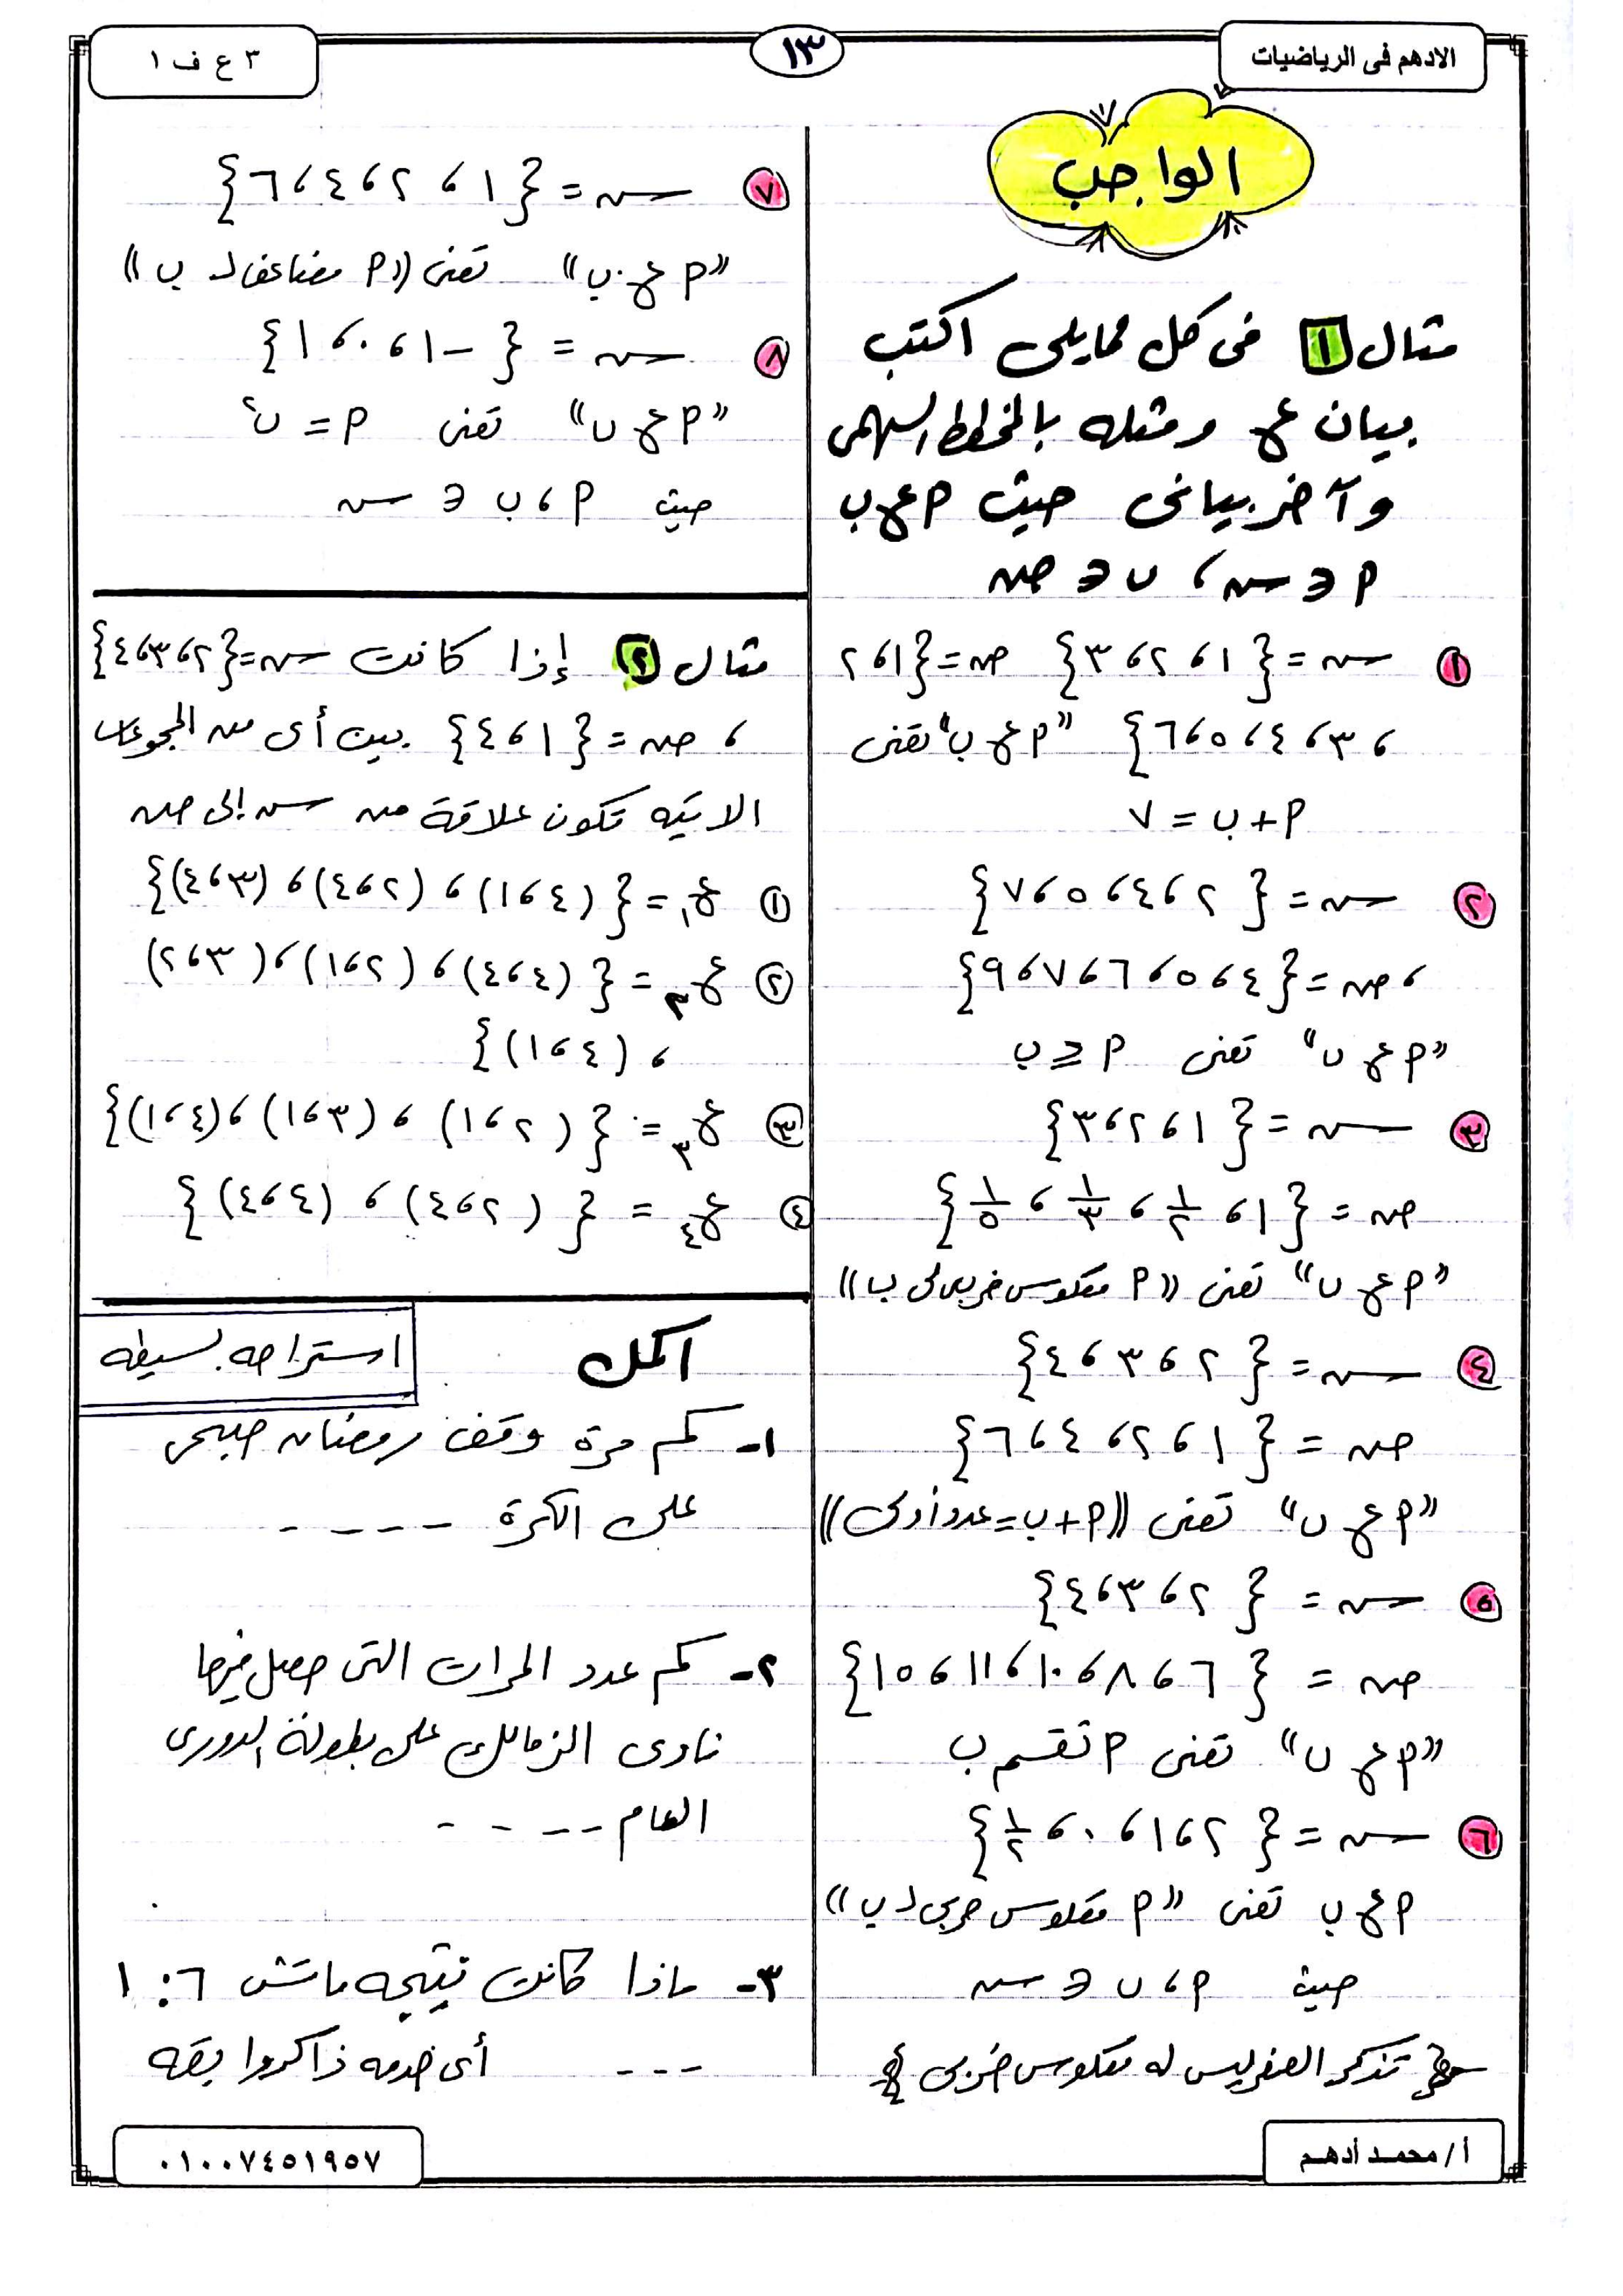 الادهم فى الرياضيات
١٣
٣ ع ف ١
الواجب
مثال ١ فى كل مما يلى اكتب
بيان ع ومثله بالمخطط السهمى
وآخر بيانى حيث P ع ب
P ∋ س ، ب ∋ ص
١ س = {١ ، ٢ ، ٣} ص = {١ ، ٢
، ٣ ، ٤ ، ٥ ، ٦} "P ع ب" تعنى
P + ب = ٧
٢ س = {٢ ، ٤ ، ٥ ، ٧}
، ص = {٤ ، ٥ ، ٦ ، ٧ ، ٩}
"P ع ب" تعنى P ≥ ب
٣ س = {١ ، ٢ ، ٣}
ص = {١ ، ١/٢ ، ١/٣ ، ١/٥}
"P ع ب" تعنى ((P معكوس ضربى لـ ب))
٤ س = {٢ ، ٣ ، ٤}
ص = {١ ، ٢ ، ٤ ، ٦}
"P ع ب" تعنى ((P + ب = عدد أولى))
٥ س = {٢ ، ٣ ، ٤}
ص = {٦ ، ٨ ، ١٠ ، ١١ ، ١٥}
"P ع ب" تعنى P تقسم ب
٦ س = {٢ ، ١ ، ٠ ، ١/٢}
P ع ب تعنى ((P معكوس ضربى لـ ب))
حيث P ، ب ∋ س
تذكر الصفر ليس له معكوس ضربى
٧ س = {١ ، ٢ ، ٤ ، ٦}
"P ع ب" تعنى ((P مضاعف لـ ب))
٨ س = {-١ ، ٠ ، ١}
"P ع ب" تعنى P = ب٢
حيث P ، ب ∋ س
مثال ٢ إذا كانت س = {٢ ، ٣ ، ٤}
، ص = {١ ، ٤} بين أى من المجموعات
الاتيه تكون علاقة من س إلى ص
١ ع١ = {(٤ ، ١) ، (٢ ، ٤) ، (٣ ، ٤)}
٢ ع٢ = {(٤ ، ٤) ، (٢ ، ١) ، (٣ ، ٢)
، (٤ ، ١)}
٣ ع٣ = {(٢ ، ١) ، (٣ ، ١) ، (٤ ، ١)}
٤ ع٤ = {(٢ ، ٤) ، (٤ ، ٤)}
اكمل
استراحه بسيطه
١- كم مرة وقف رمضان صبحى
على الكرة ----
٢- كم عدد المرات التى حصل فيها
نادى الزمالك على بطولة الدورى
العام ----
٣- ماذا كانت نتيجه ماتش ٦ : ١
--- أى خدمه ذاكروا بقه
أ / محمد أدهم
٠١٠٠٧٤٥١٩٥٧